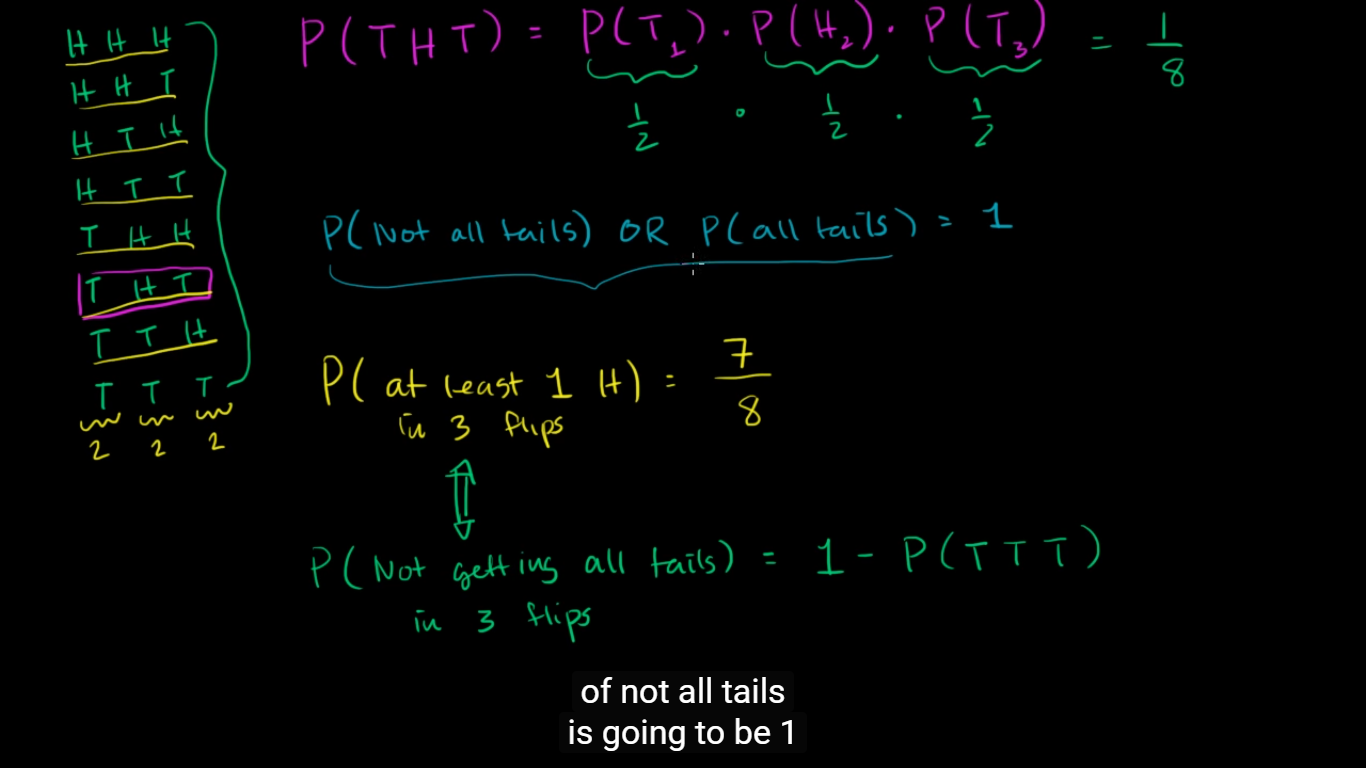 H H H
H H T
H T H
H T T
T H H
T H T
T T H
T T T
2 2 2
P(THT) = P(T₁) · P(H₂) · P(T₃) = 1/8
1/2 · 1/2 · 1/2
P(Not all tails) OR P(all tails) = 1
P(at least 1 H) = 7/8
in 3 flips
P(Not getting all tails) = 1 - P(TTT)
in 3 flips
of not all tails
is going to be 1